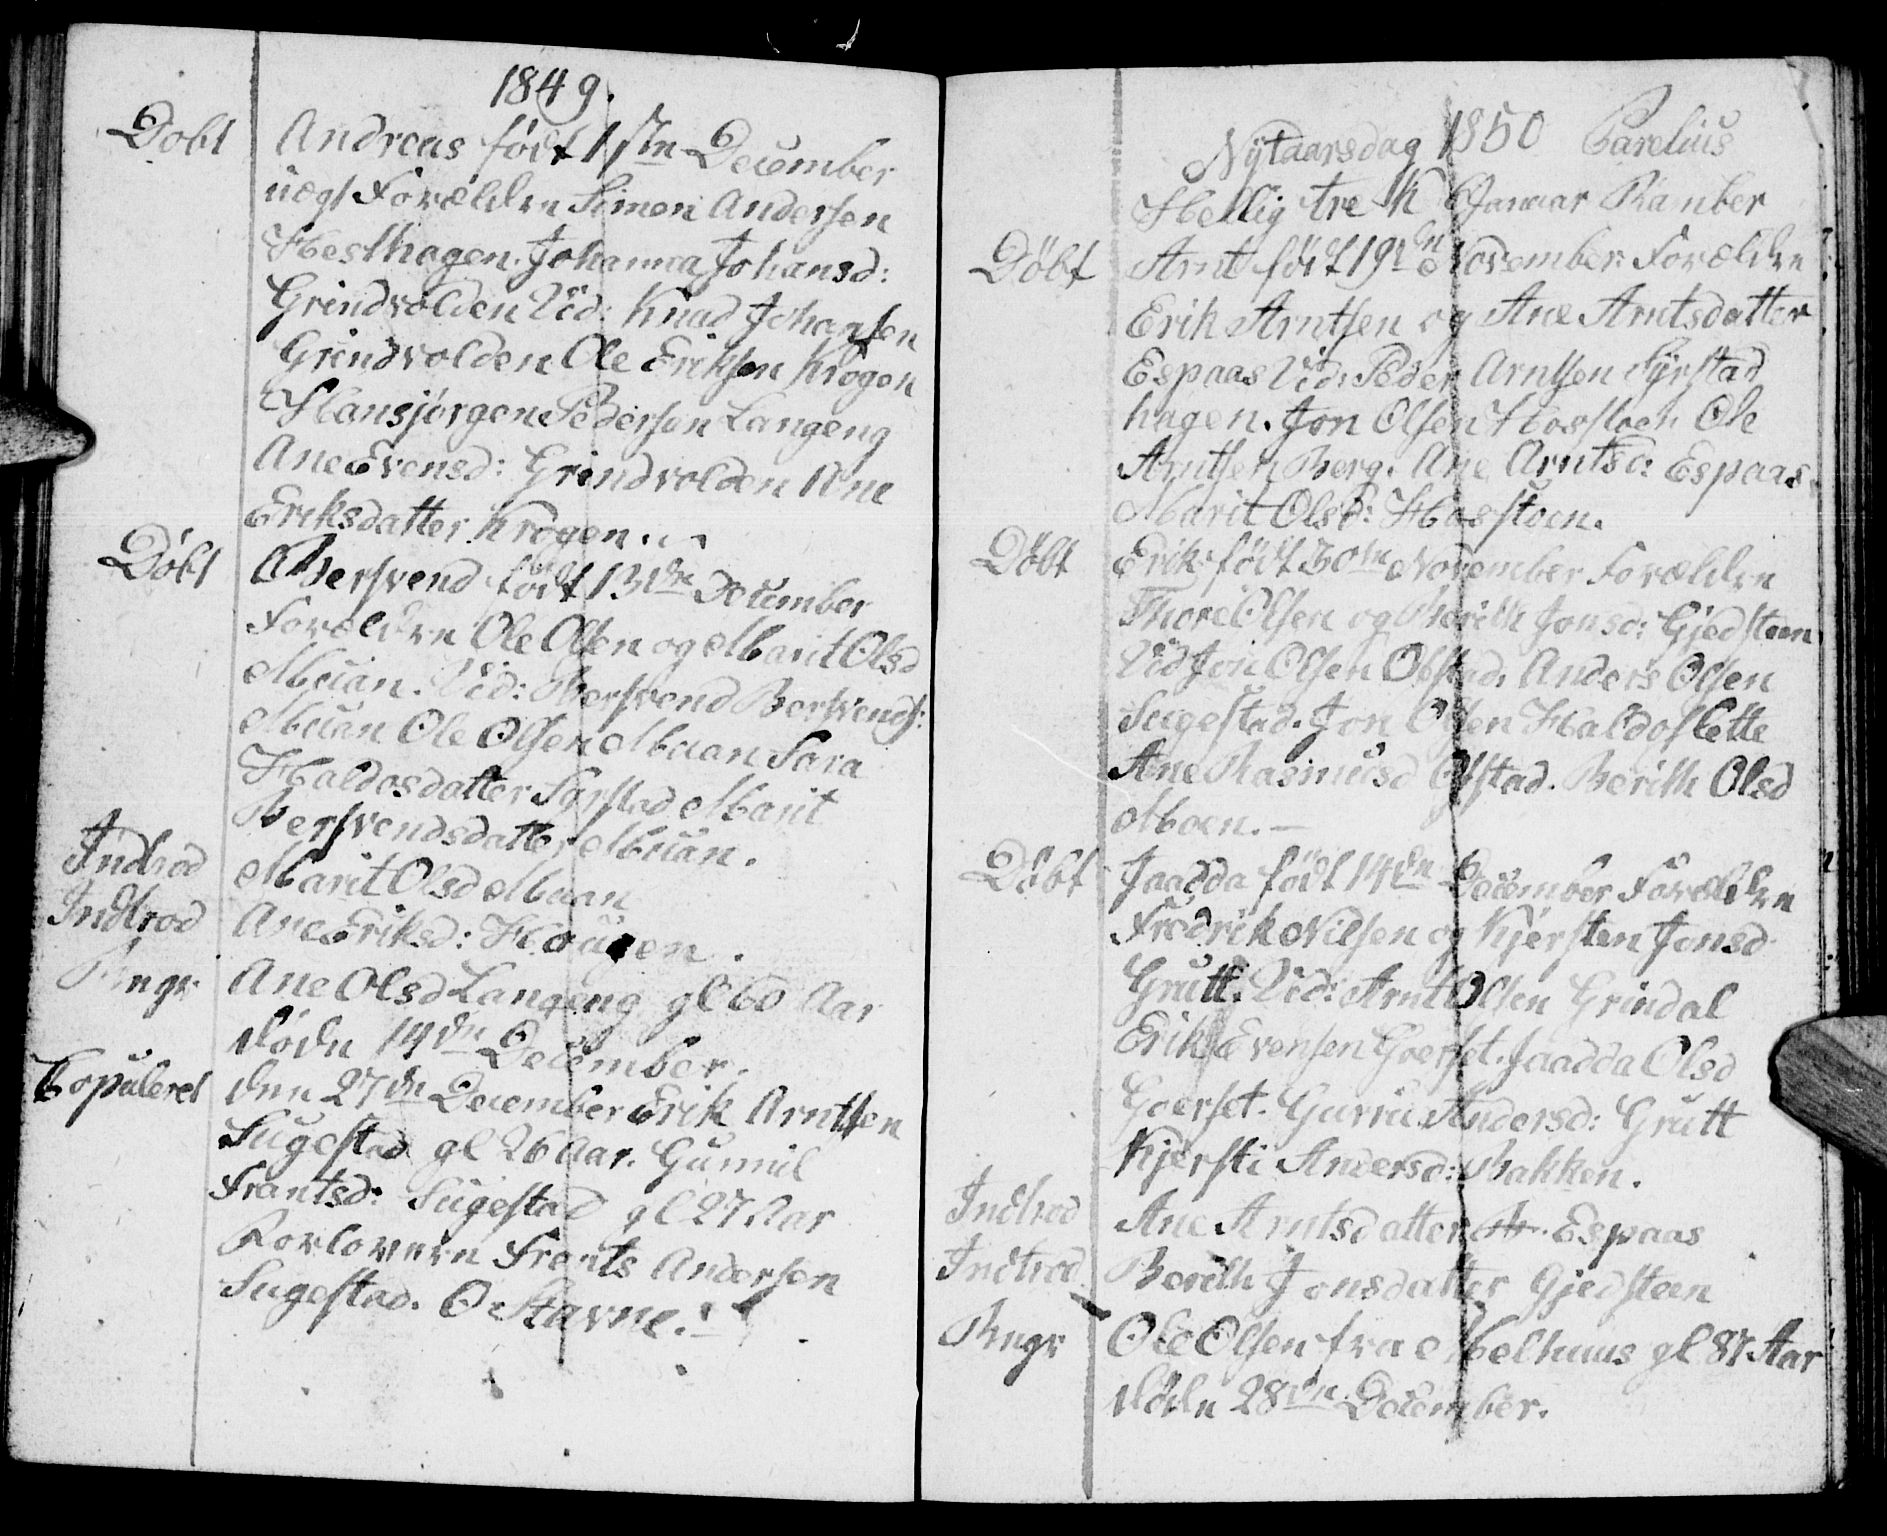 1849.
Döbt Andreas född 1ste December
uægt Forældre Simon Andersen
Hesthagen. Johanna Johansd:
Grindvolden Vid: Knud Johansen
Grindvolden Ole Eriksen Krogen
Hansjörgen Pedersen Langeng
Ane Evensd: Grindvolden Ane
Eriksdatter Krogen.
Döbt Bersvend födt 13de December
Forældre Ole Olsen og Marit Olsd
Muan. Vid: Bersvend Bersvends:
Muan Ole Olsen Muan Sara
Haldosdatter Syrstad Marit
Bersvendsdatter Muan.
Indtrod Marit Olsd Muan
Indtrod Ane Eriksd: Haugen.
Bngr Ane Olsd Langeng gl 60 Aar
döde 14de December.
Copuleret den 27de December Erik Arntsen
Sugestad gl 26 Aar. Gunnil
Frantsd: Sugestad gl 27 Aar
Forlovere Frants Andersen
Sugestad. O. Stavne.
Nytaarsdag 1850 Parelius
Hellig tre K 6 Januar Kamber
Döbt Arnt födt 19de November Forældre
Erik Arntsen og Ane Arntsdatter
Espaas Vid: Peder Arntsen Syrstad
hagen. Jon Olsen Hosstoen Ole
Arntsen Berg. Ane Arntsd: Espaas.
Marit Olsd: Hosstoen.
Döbt Erik födt 30te November Forældre
Thore Olsen og Berith Jonsd: Gjedsteen
Vid Jon Olsen Ofstad, Anders Olsen
Sugestad. Jon Olsen Haldoslette
Ane Rasmusd Ofstad. Berith Olsd
Moen. —
Döbt Jaadda födt 14de December Forældre
Fredrik Nilsen og Kjersten Jonsd
Grutt. Vid: Arnt Olsen Grindal
Erik Evensen Goerset. Jaadda Olsd
Goerset. Gurru Andersd: Grutt
Kjersti Andersd: Bakken.
Indtrod Ane Arntsdatter Espaas
Indtrod Berith Jonsdatter Gjedsteen
Bngr Ole Olsen fra Melhuus gl 87 Aar
döde 28de December.